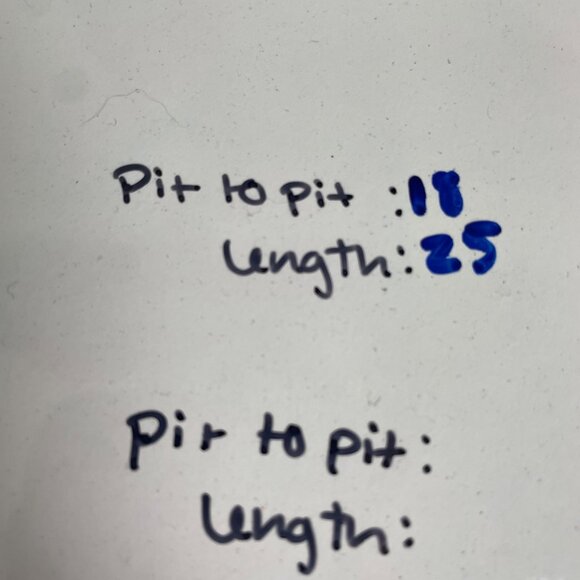 Pit to pit :18
Length:25
Pit to pit:
Length: